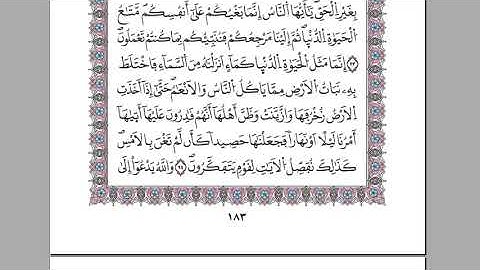 بِغَيْرِ الْحَقِّ يَٰٓأَيُّهَا النَّاسُ إِنَّمَا بَغْيُكُمْ عَلَىٰٓ أَنفُسِكُم مَّتَٰعَ
الْحَيَوٰةِ الدُّنْيَا ثُمَّ إِلَيْنَا مَرْجِعُكُمْ فَنُنَبِّئُكُم بِمَا كُنتُمْ تَعْمَلُونَ
٢٣ إِنَّمَا مَثَلُ الْحَيَوٰةِ الدُّنْيَا كَمَآءٍ أَنزَلْنَٰهُ مِنَ السَّمَآءِ فَاخْتَلَطَ
بِهِۦ نَبَاتُ الْأَرْضِ مِمَّا يَأْكُلُ النَّاسُ وَالْأَنْعَٰمُ حَتَّىٰٓ إِذَآ أَخَذَتِ
الْأَرْضُ زُخْرُفَهَا وَازَّيَّنَتْ وَظَنَّ أَهْلُهَآ أَنَّهُمْ قَٰدِرُونَ عَلَيْهَآ أَتَىٰهَآ
أَمْرُنَا لَيْلًا أَوْ نَهَارًا فَجَعَلْنَٰهَا حَصِيدًا كَأَن لَّمْ تَغْنَ بِالْأَمْسِ
كَذَٰلِكَ نُفَصِّلُ الْءَايَٰتِ لِقَوْمٍ يَتَفَكَّرُونَ ٢٤ وَاللَّهُ يَدْعُوٓا۟ إِلَىٰ
١٨٣